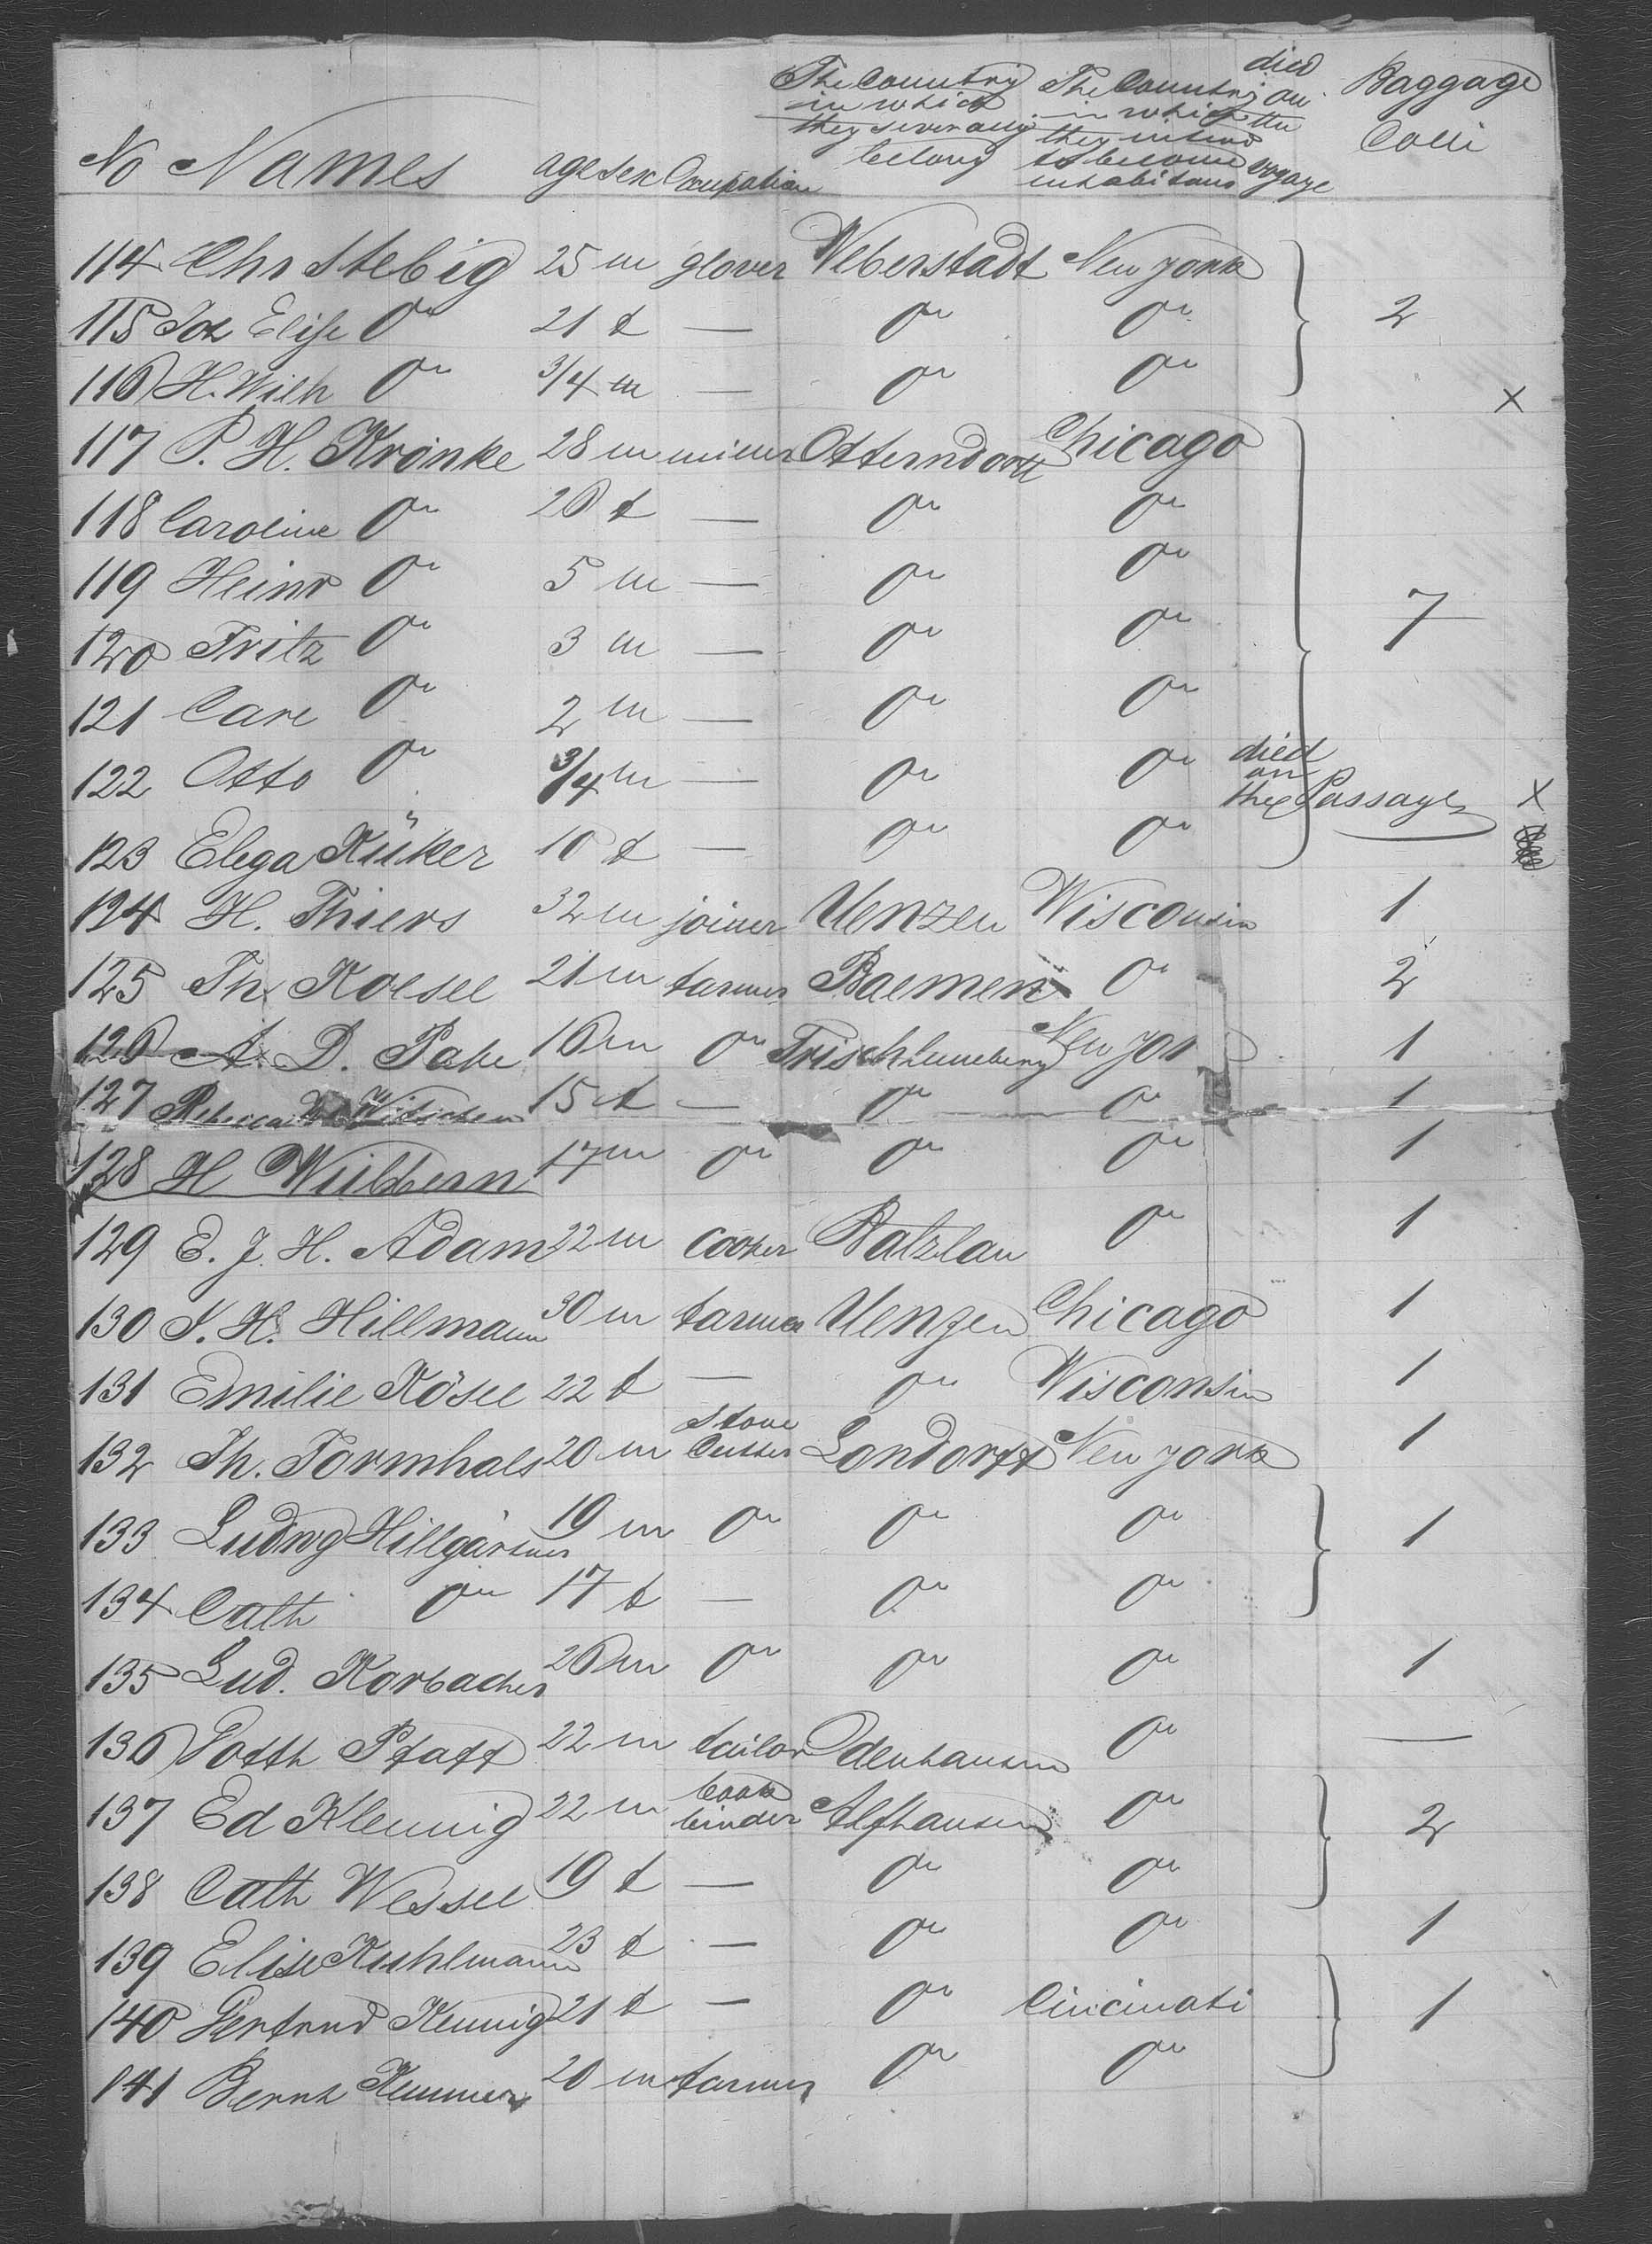 No Names age sex Occupation The Country in which they severally belong The Country in which they intend to become inhabitans died on the voyage Baggage Colli
114 Chr Stebig 25 m glover Weberstadt New york
115 Joh Elise do 21 f — do do 2
116 H. Wilh do 3/4 m — do do
117 P. H. Krönke 28 m miner Otterndorff Chicago
118 Caroline do 26 f — do do
119 Heinr do 5 m — do do
120 Fritz do 3 m — do do 7
121 Carl do 2 m — do do
122 Otto do 3/4 m — do do died on the Passage
123 Elega Küker 10 f — do do
124 H. Thiers 32 m joiner Uenzen Wisconsin 1
125 Th. Koesel 21 m farmer Baemen do 2
126 A. D. Pape 16 m do Frischluneberg New yor 1
127 Rebecca Witschen 15 f — do do 1
128 H Wübbern 17 m do do do 1
129 E. J. H. Adam 22 m cooper Batzlau do 1
130 J. H. Hillmann 30 m farmer Uenzen Chicago 1
131 Emilie Kösel 22 f — do Wisconsin 1
132 Th. Formhals 20 m stone Cutter Londorff New york 1
133 Ludwg Hillgärtner 19 m do do do 1
134 Cath do 17 f — do do
135 Lud. Korbacher 26 m do do do 1
136 Gotth Pfaff 22 m tailor Odenhausen do —
137 Ed Klennig 22 m book binder Alfhausen do 2
138 Cath Wessel 19 f — do do
139 Elise Kuhlmann 23 f — do do 1
140 Gertrud Kennig 21 f — do Cincinati 1
141 Bernh Kemmer 20 m farmer do do